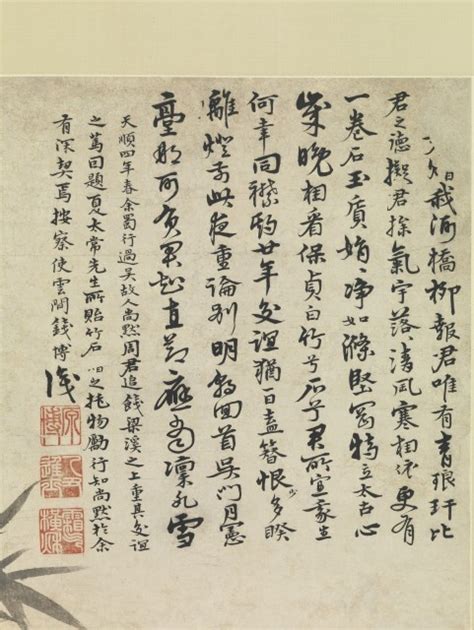 知栽河橋柳報君唯有青琅玕比
君之德擬君操氣宇落落清風寒相依更有
一卷石玉質娟娟淨如滌堅固特立太古心
歲晚相看保貞白竹兮石兮君所宜豪圭
何幸同襟期廿年交誼猶日盍簪恨少多暌
離燈前此夜重論別明朝回首吳門月憲
臺那可負君知直節應當凜冰雪
天順四年春余蜀行過吳故人尚默周君追餞梁溪之上重其交誼
之篤因題夏太常先生所貽竹石以之托物勵行知尚默於余
有深契焉按察使雲間錢博
識